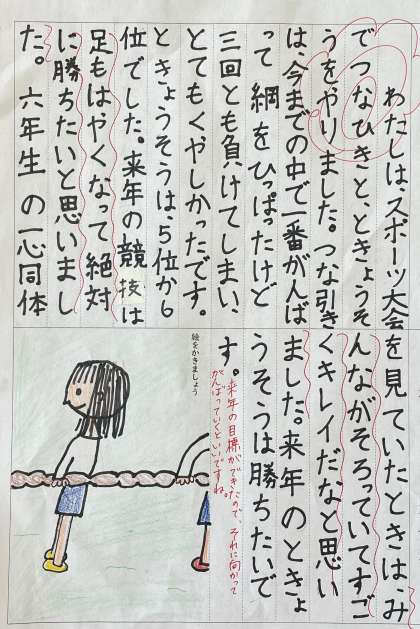 わたしは、スポーツ大会
でつなひきと、ときょうそ
うをやりました。つな引き
は、今までの中で一番がんば
って綱をひっぱったけど
三回とも負けてしまい、
とてもくやしかったです。
ときょうそうは、5位から6
位でした。来年の競技は
足もはやくなって絶対
に勝ちたいと思いまし
た。六年生の一心同体
を見ていたときは、み
んながそろっていてすご
くキレイだなと思い
ました。来年のときょ
うそうは勝ちたいで
す。
来年の目標ができたので、それに向かって
がんばっていくといいですね。
絵をかきましょう